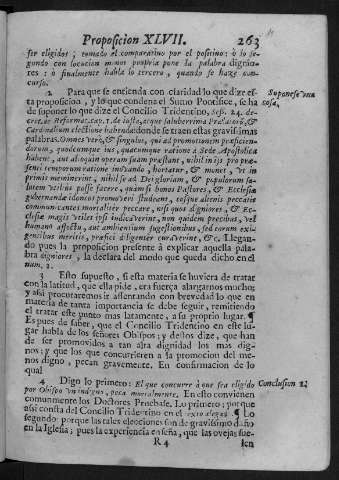 Proposicion XLVII. 263
ser eligidos; tomado el comparativo por el positivo: ò lo se-
gundo con locucion menos propria pone la palabra dignio-
res: ò finalmente habla lo tercero, quando se haze con-
curso.
2. Para que se entienda con claridad lo que dize es-
ta proposicion, y lo que condena el Sumo Pontifice, se ha
de suponer lo que dize el Concilio Tridentino, ses. 24. de-
cret. de Reformat. cap. 1. de
Cardinalium electione habenda donde se traen estas gravissimas
palabras. Omnes verò, & singulos, qui ad promotionem præficien-
dorum, quodcumque ius, quacumque ratione à Sede Apostolica
habent, aut alioquin operam suam præstant, nihil in ijs pro præ-
senti temporum ratione innovando, hortatur, & monet, vt in
primis meminerint, nihil se ad Dei gloriam, & populorum sa-
lutem vtilius posse facere, quàm si bonos Pastores, & Ecclesiæ
gubernandæ idoneos promoveri studeant, eosque alienis peccatis
communicantes mortaliter peccare, nisi quos digniores, & Ec-
clesiæ magis vtiles ipsi iudicaverint, non quidem precibus, vel
humano affectu, aut ambientium suggestionibus, sed eorum exi-
gentibus meritis, præfici diligenter curaverint, &c. Llegan-
do pues la proposicion presente à explicar aquella pala-
bra digniores, la declara del modo que queda dicho en el
num. 1.
3 Esto supuesto, si esta materia se huviera de tratar
con la latitud, que ella pide, era fuerça alargarnos mucho;
y assi procuraremos ir assentando con brevedad lo que en
materia de tanta importancia se debe seguir, remitiendo
el tratar este punto mas latamente, a su proprio lugar. ¶
Es pues de saber, que el Concilio Tridentino en este lu-
gar habla de los señores Obispos; y destos dize, que han
de ser promovidos a tan alta dignidad los mas dig-
nos; y que los que concurrieren a la promocion del me-
nos digno, pecan gravemente. En confirmacion de lo
qual
4 Digo lo primero: El que concurre à que sea eligido
por Obispo vn indigno, peca mortalmente. En esto convienen
comunmente los Doctores Pruebase. Lo primero; porque
assi consta del Concilio Tridentino en el ¶ Lo
segundo: porque las tales elecciones son de gravissimo daño
en la Iglesia; pues la experiencia enseña, que las ovejas sue-
R 4 len
Suponese vna
cosa.
Conclusion 1.